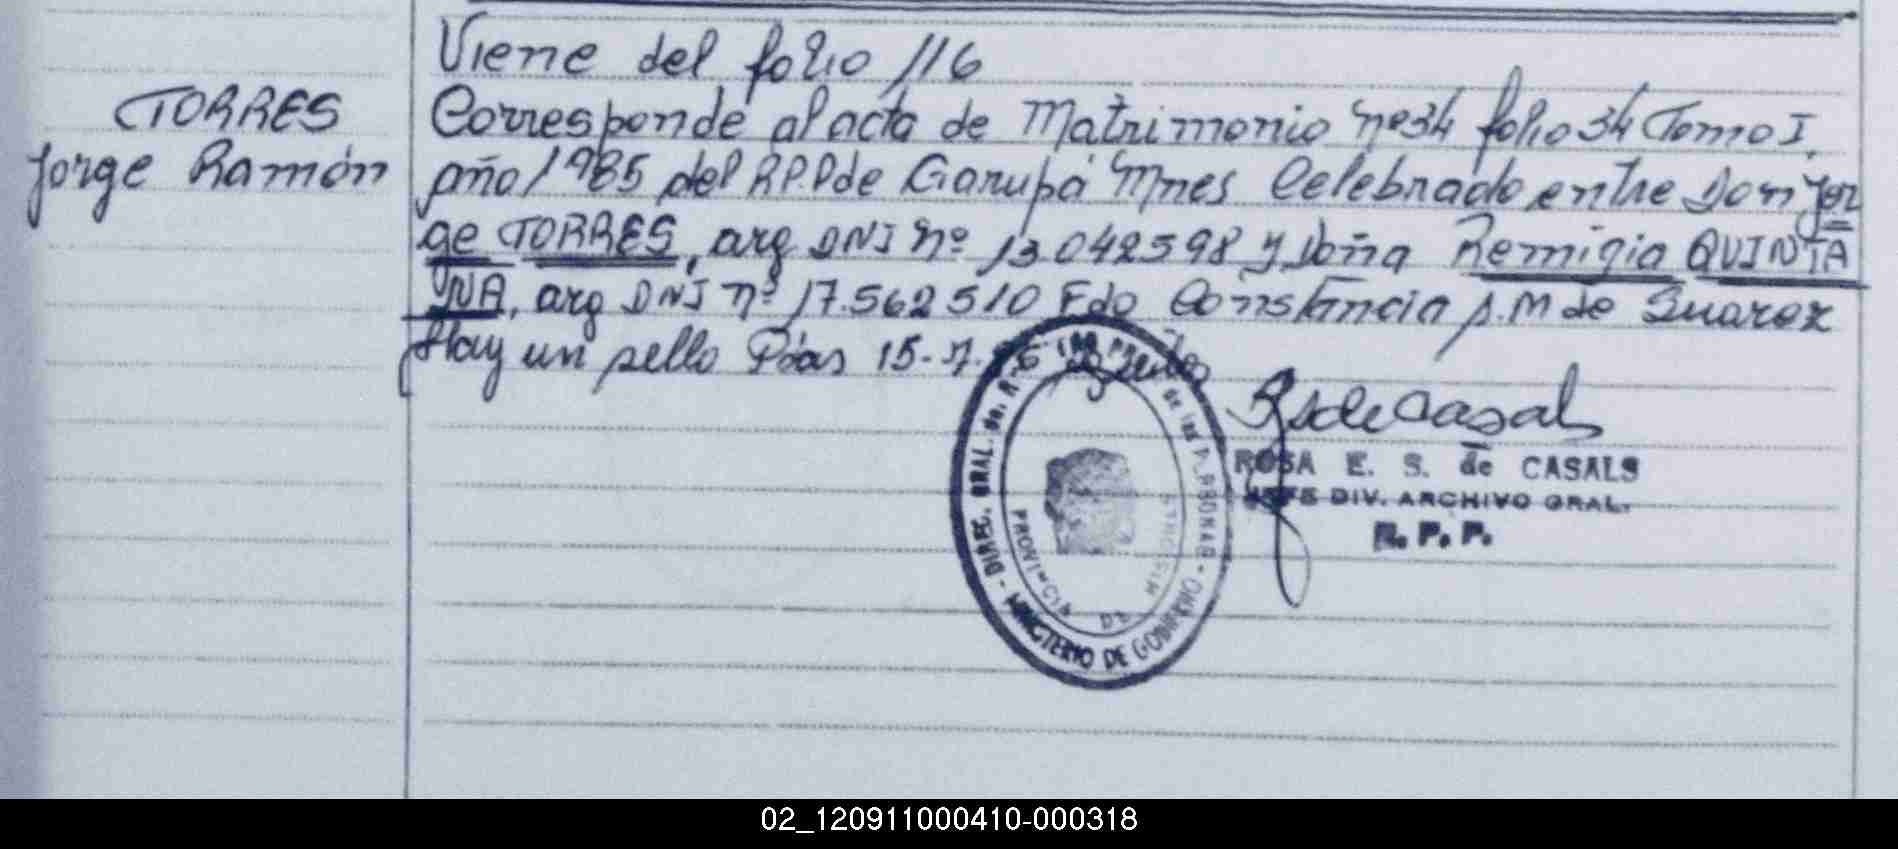 Viene del folio 116
TORRES
Jorge Ramón
Corresponde al acta de Matrimonio nº 34 folio 34 Tomo I.
año 1985 del R.P.P de Garupá Mnes Celebrado entre Don Jor
ge TORRES, arg DNI Nº 13 042598 y Doña Remigia QUINTA
NA, arg DNI nº 17.562510 Fdo Constancia A.M de Suarez
Hay un sello Pdas 15-7-
DIREC. GRAL. de. R. de las PERSONAS - MINISTERIO DE GOBIERNO -
PROVINCIA DE MISIONES
RsdeCasals
ROSA E. S. de CASALS
JEFE DIV. ARCHIVO GRAL.
R. P. P.
02_120911000410-000318